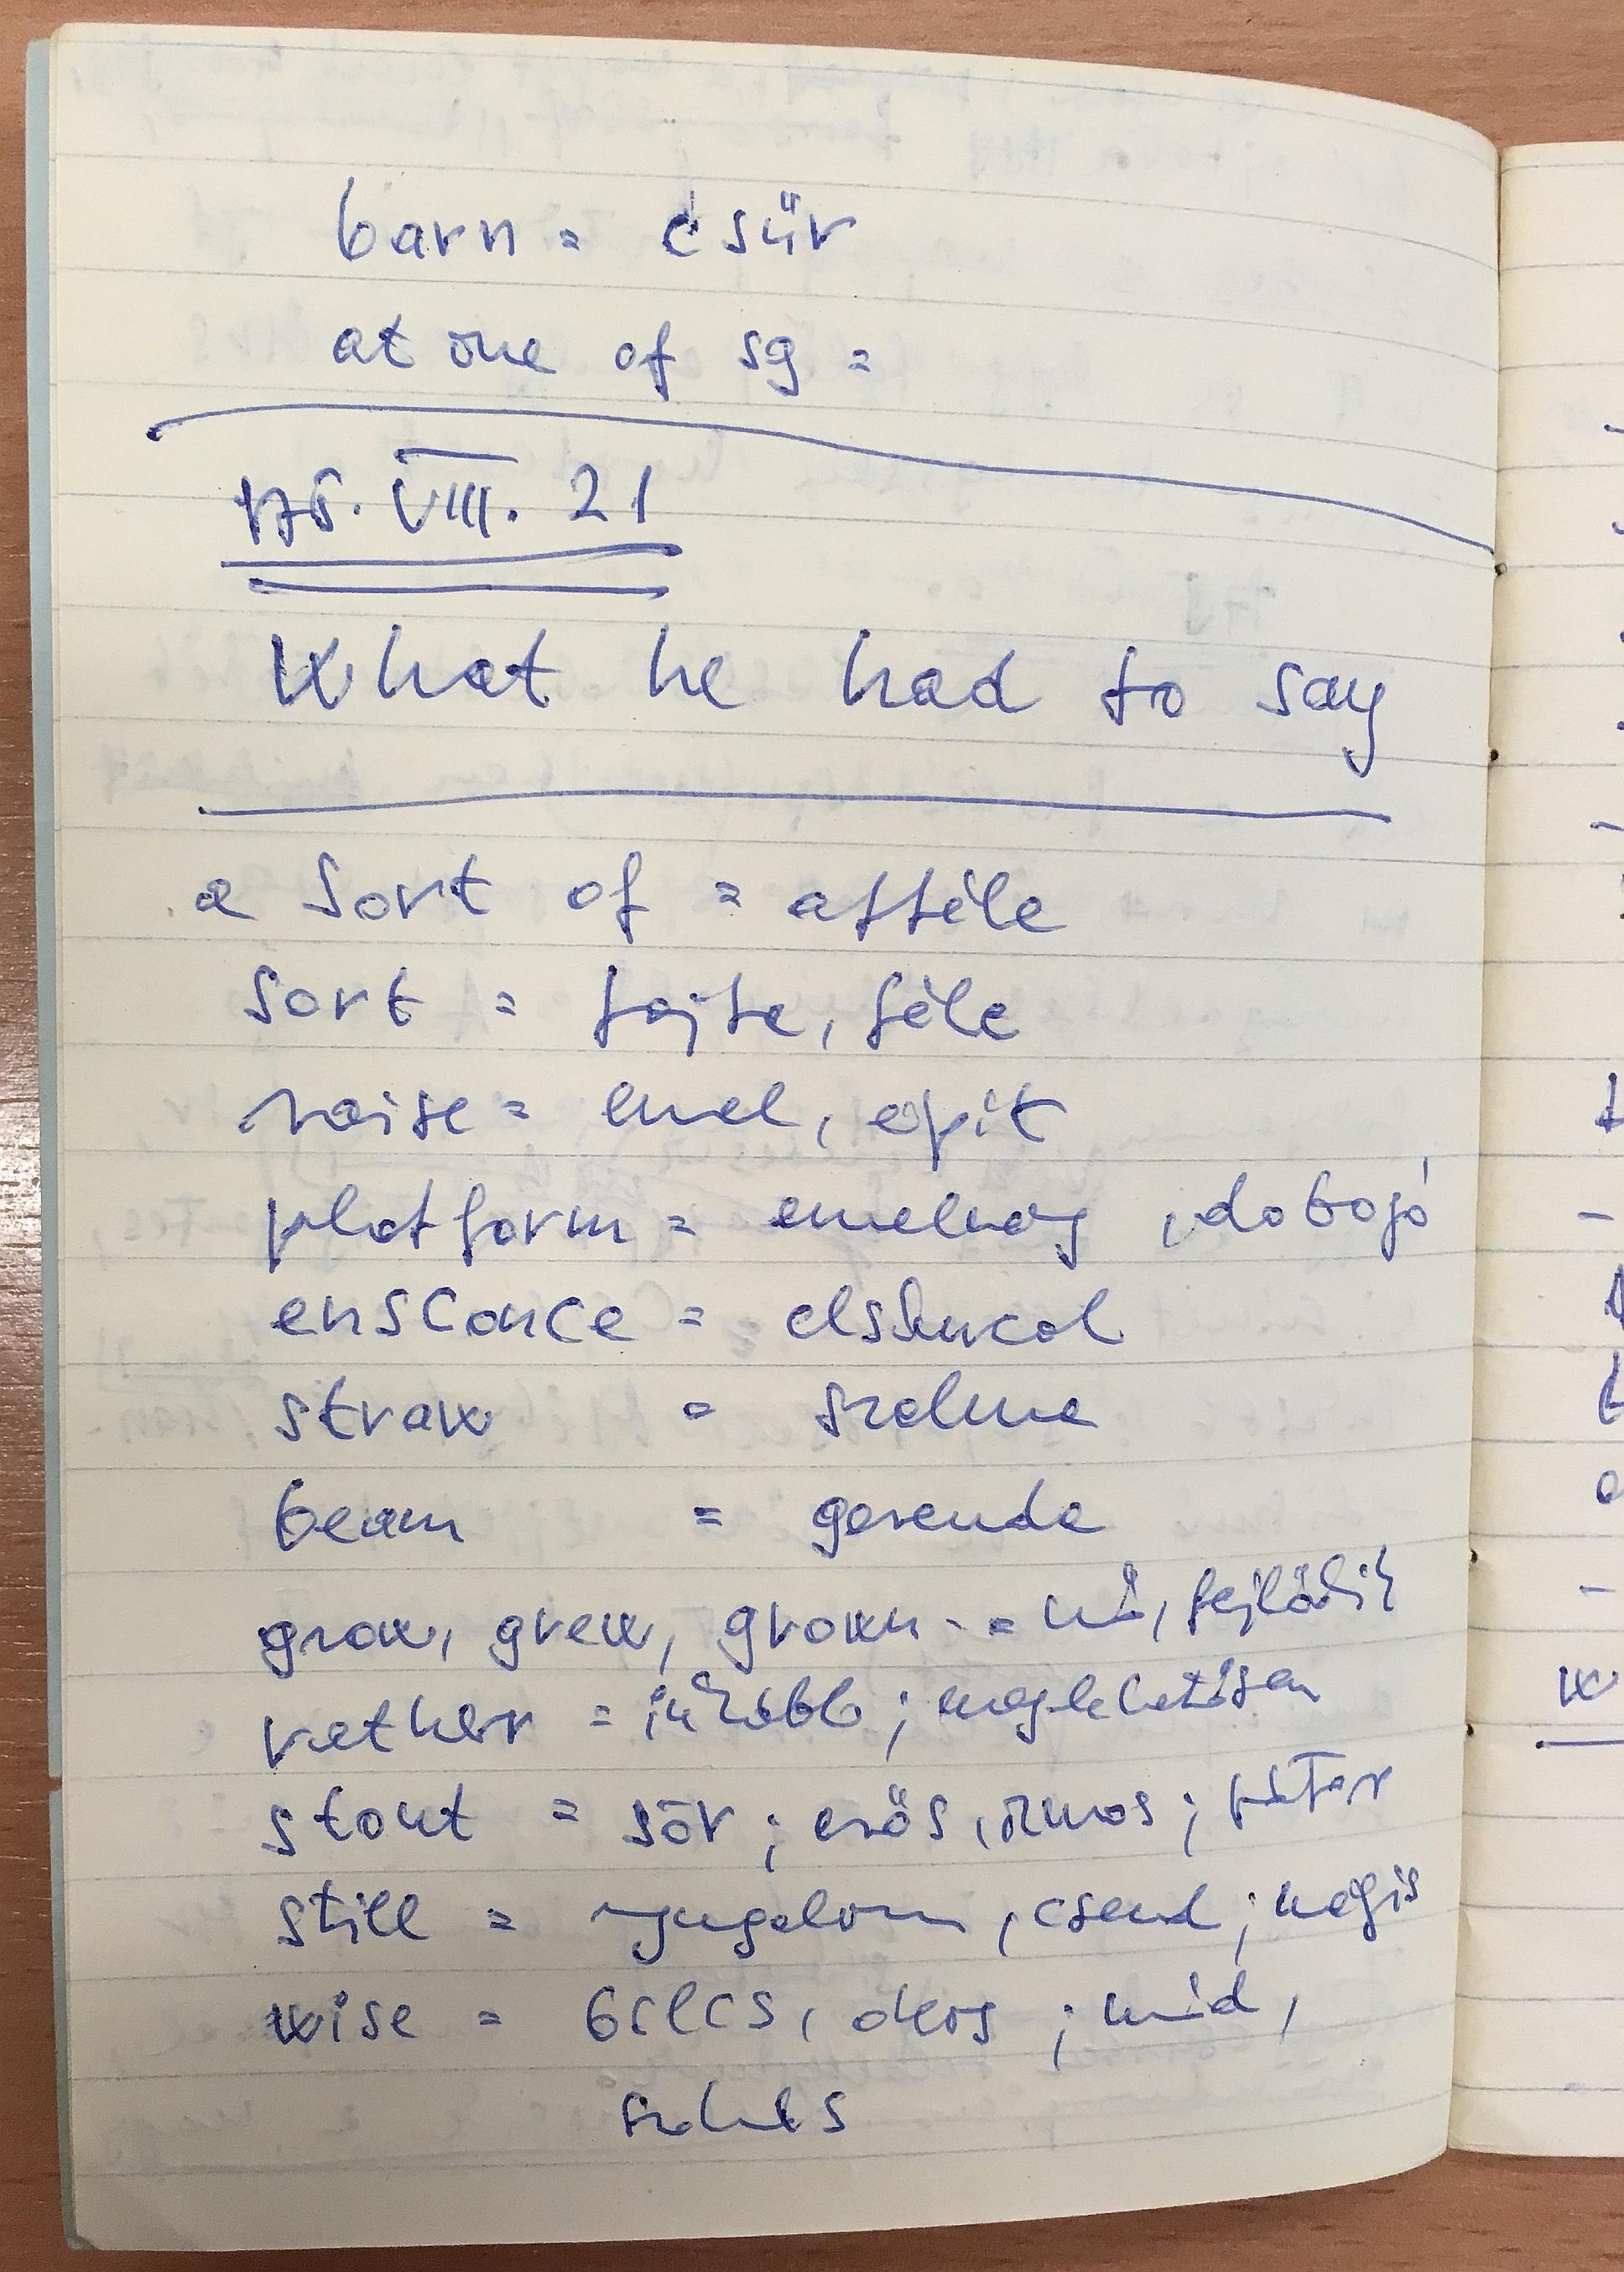 barn = csűr
at one of sg =
VIII. 21
What he had to say
a sort of = afféle
sort = fajta, féle
raise = emel, épít
platform = emelvény, dobogó
ensconce = elsáncol
straw = szalma
beam = gerenda
grow, grew, grown - = nő, fejlődik
rather = inkább; meglehetősen
stout = sör; erős, izmos;
still = nyugalom, csend; mégis
wise = bölcs, okos; mód,
szokás